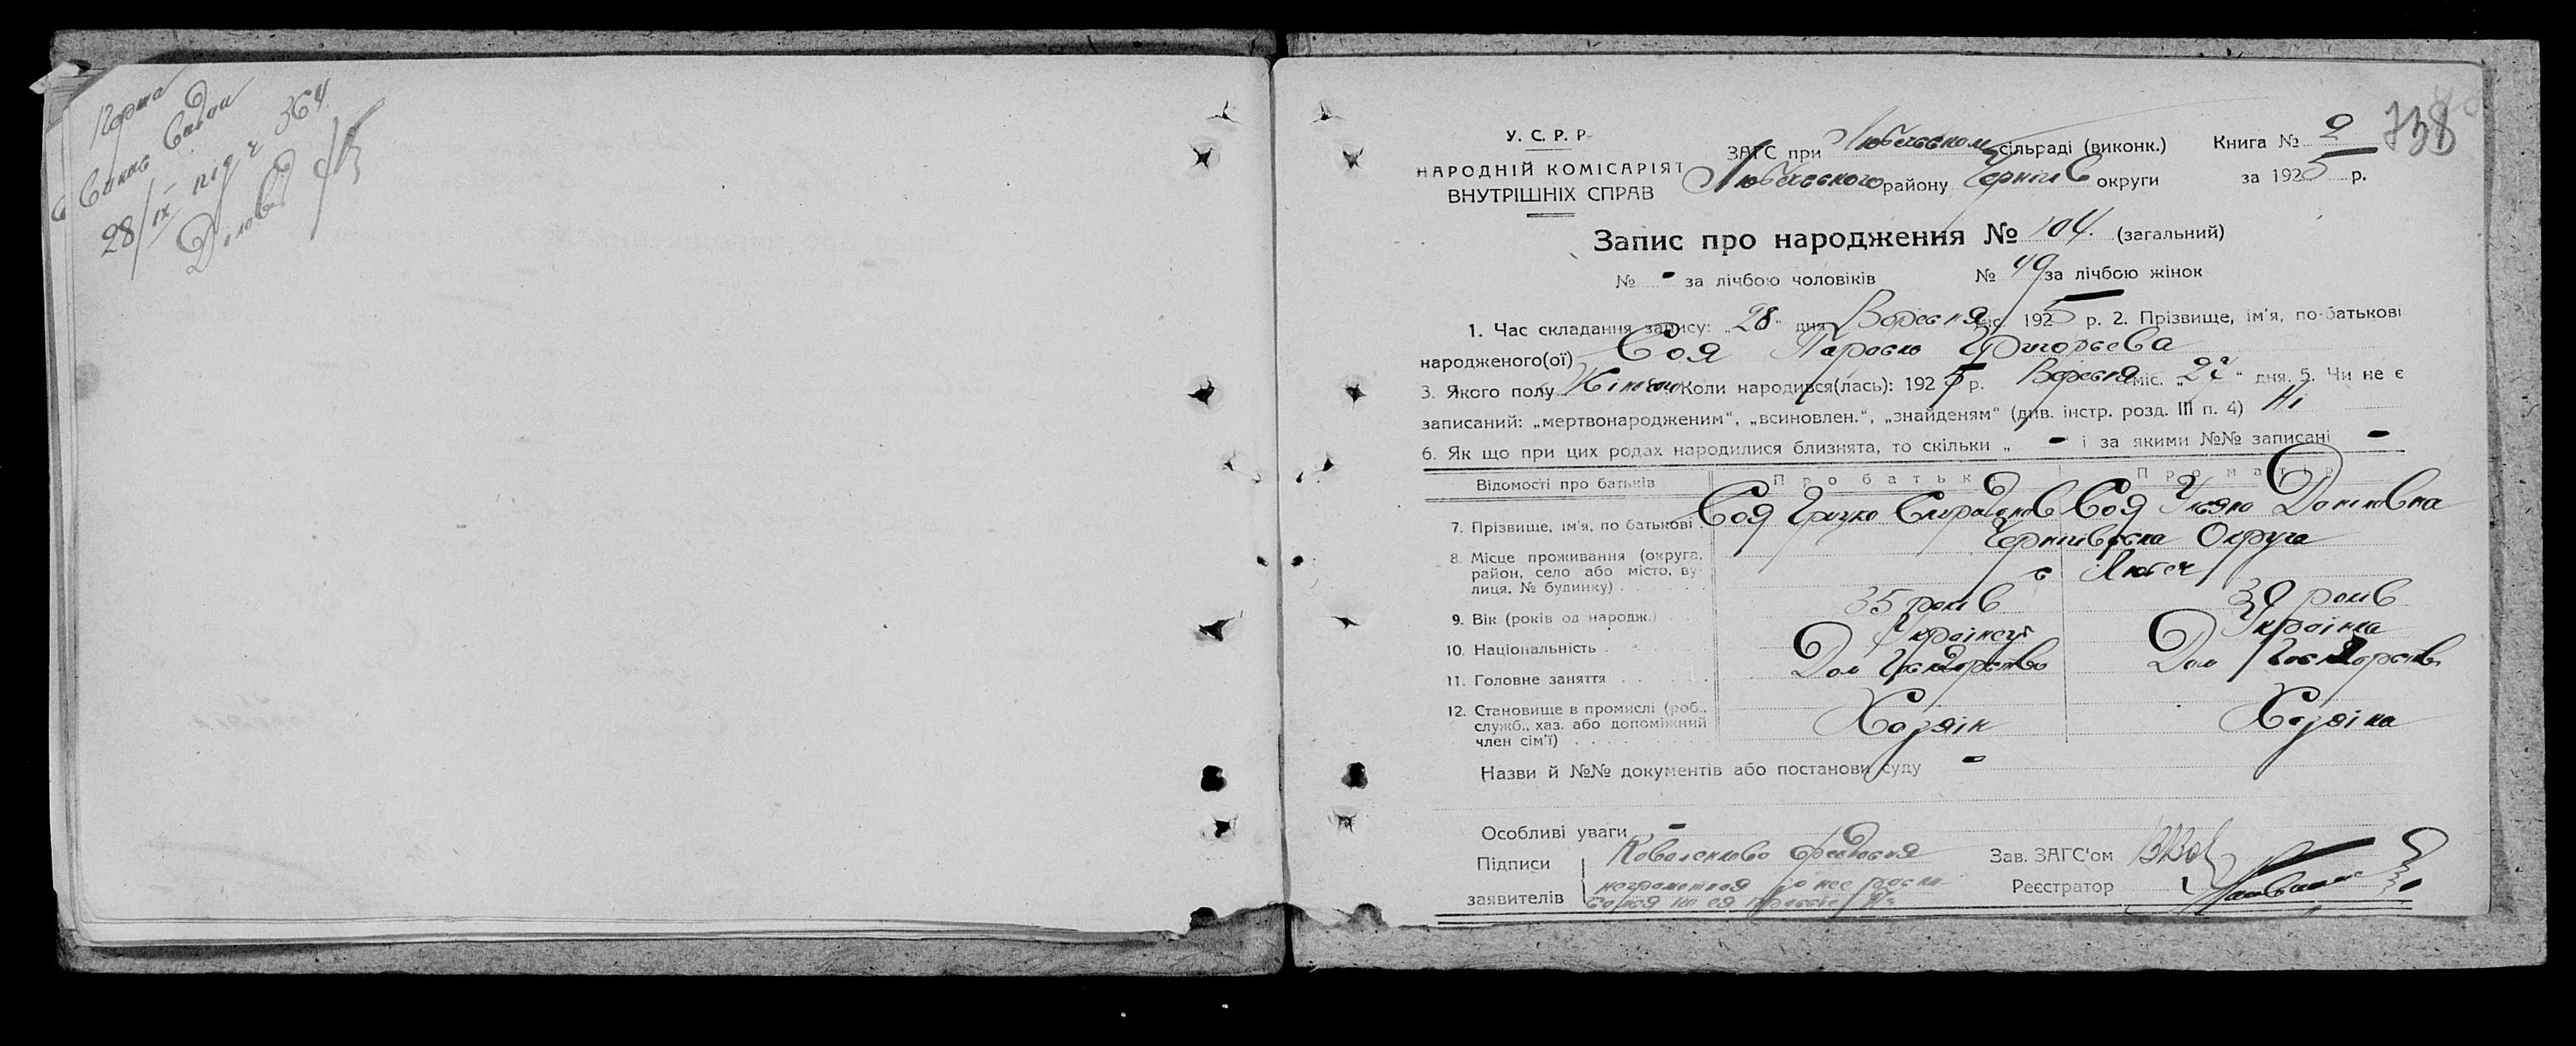 28/IX під ч 364
738
У. С. Р. Р.
НАРОДНІЙ КОМІСАРІЯТ
ВНУТРІШНІХ СПРАВ
ЗАГС при Любечськом сільраді (виконк.) Книга № 2
Любечського району Черніг округи за 1925 р.
Запис про народження № 104. (загальний)
№ - за лічбою чоловіків № 49 за лічбою жінок
1. Час складання запису: „28“ дня Вересня міс. 1925 р. 2. Прізвище, ім'я, по-батькові
народженого(ої) Соя Параска Григорьева
3. Якого полу Жіночої Коли народився(лась): 1925 р. Вересня міс. „ “ дня. 5. Чи не є
записаний: „мертвонародженим“, „всиновлен.“, „знайденям“ (див. інстр. розд. III п. 4) Ні
6. Як що при цих родах народилися близнята, то скільки „ - і за якими №№ записані -
Відомості про батьків Про батька Про матір
7. Прізвище, ім'я, по батькові Соя Грицко Спиридонов Соя Уляна Даниловна
8. Місце проживання (округа, Чернігівська Округа
район, село або місто, ву- с Любеч
лиця, № будинку)
9. Вік (років од народж.) 35 років 30 років
10. Національність Українець Українка
11. Головне заняття Дом Господарство Дом Господарств
12. Становище в промислі (роб.,
служб., хаз. або допоміжний Хазяін Хазяіна
член сім'ї)
Назви й №№ документів або постанови суду -
Особливі уваги -
Підписи Коваленкова Федосия Зав. ЗАГС'ом
неграмотная за нее Реєстратор
заявителів